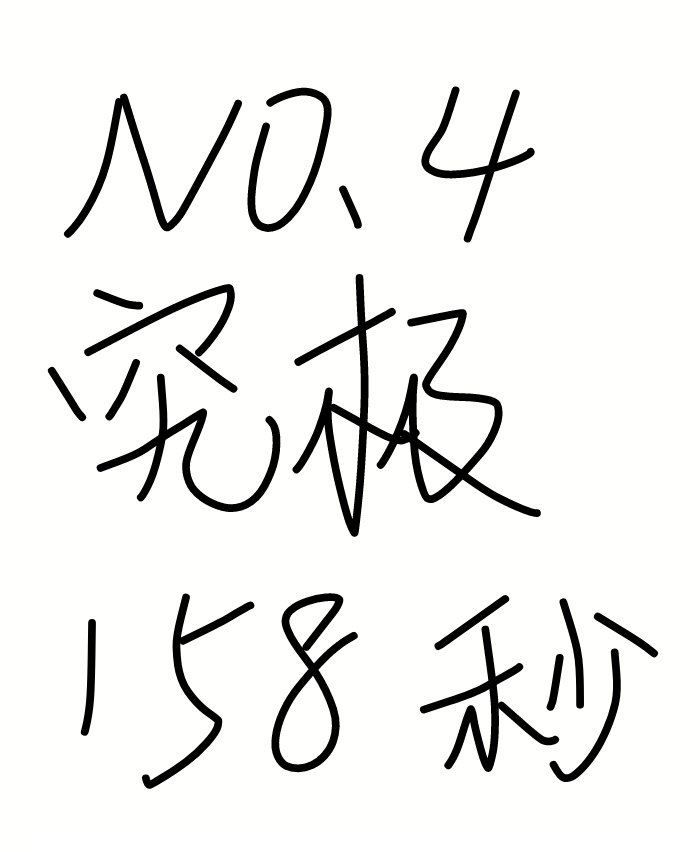 NO、4
究极
158秒